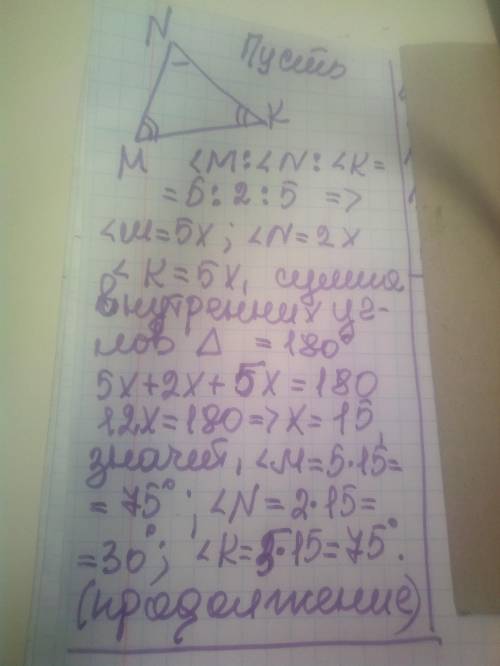 N Пусть
M K
∠M:∠N:∠K=
=5:2:5 =>
∠M=5x; ∠N=2x
∠K=5x, сумма
внутренних уг-
лов Δ =180°
5x+2x+5x=180
12x=180=>x=15,
значит, ∠M=5·15=
=75°; ∠N=2·15=
=30°; ∠K=5·15=75°.
(продолжение)